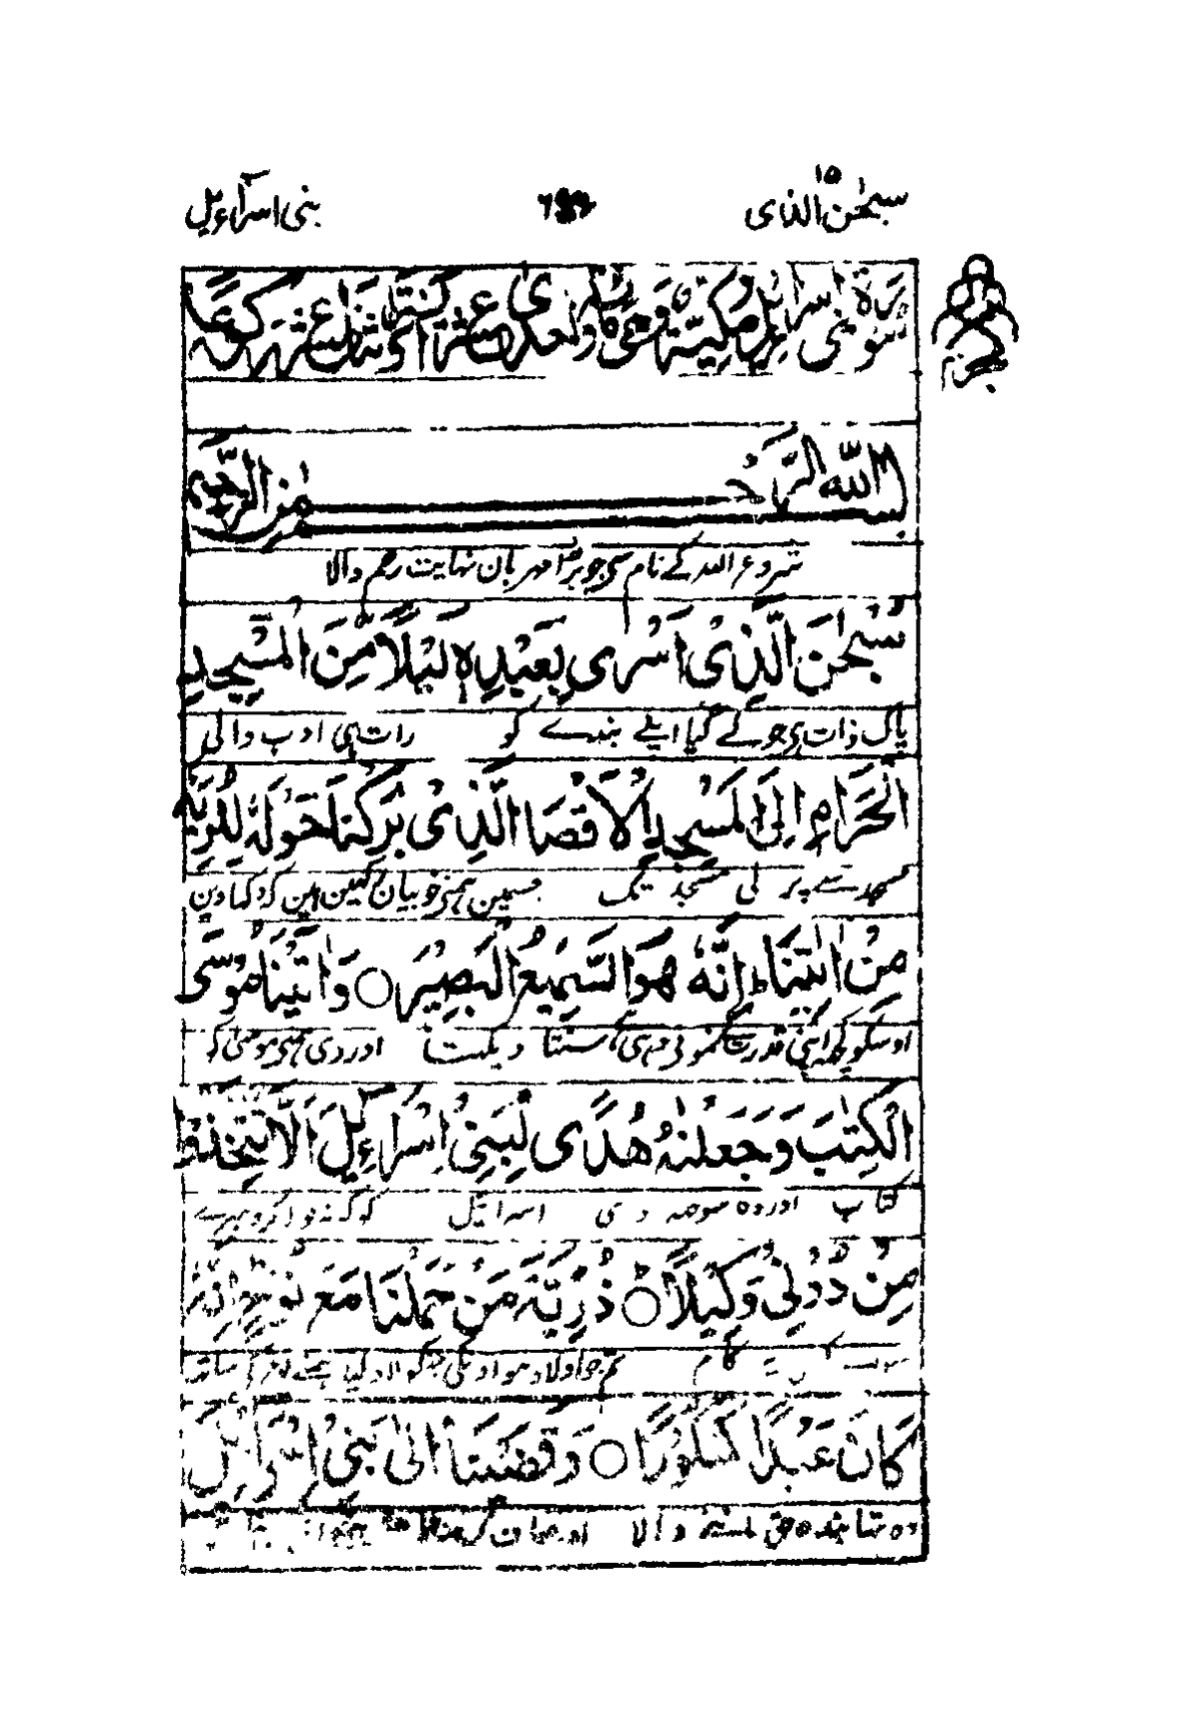 سبحٰن الذی ۱۵
بنی اسرآءیل
سورة بنی اسرآءیل مکیّة وهی مائة واحدی عشرة اٰیة واثنا عشر رکوعًا
بسم الله الرّحمٰن الرّحیم
شروع الله کے نام سی جو بڑا مهربان نهایت رحم والا
سُبْحٰنَ الَّذِیْۤ اَسْرٰی بِعَبْدِهٖ لَیْلًا مِّنَ الْمَسْجِدِ
پاک ذات ہی جو لے گیا اپنے بندے کو رات ہی ادب والی
الْحَرَامِ اِلَی الْمَسْجِدِ الْاَقْصَا الَّذِیْ بٰرَکْنَا حَوْلَهٗ لِنُرِیَهٗ
مسجد سے پر لی مسجد تک جسمین ہمنے خوبیان رکهین هین که دکها دین
مِنْ اٰیٰتِنَا ؕ اِنَّهٗ هُوَ السَّمِیْعُ الْبَصِیْرُ ○ وَاٰتَیْنَا مُوْسَی
اوسکو کچه اپنی قدرت کے نمونے وہ ہی ہے سنتا دیکهتا اور دی ہمنے موسیٰ کو
الْکِتٰبَ وَجَعَلْنٰهُ هُدًی لِّبَنِیْۤ اِسْرَآءِیْلَ اَلَّا تَتَّخِذُوْا
کتاب اور وه سوجه دی اسرائیل که نه
مِنْ دُوْنِیْ وَکِیْلًا ○ؕ ذُرِّیَّةَ مَنْ حَمَلْنَا مَعَ نُوْحٍ ؕ اِنَّهٗ
کام تم جو اولاد هو اونکی جنکو لاد لیا ہمنے نوح کے ساته
کَانَ عَبْدًا شَکُوْرًا ○ وَقَضَیْنَاۤ اِلٰی بَنِیْۤ اِسْرَآءِیْلَ
وه تها بنده حق ماننے والا اور صاف